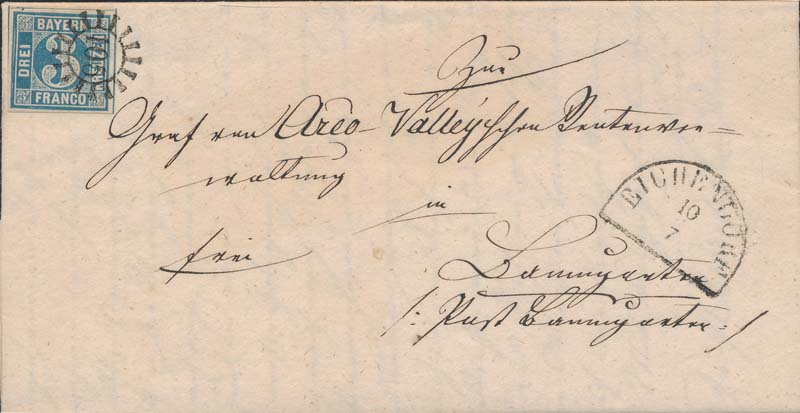 BAYERN
DREI
3
FRANCO
Zur
Graf von Arco-Valley'schen Rentenver=
waltung
in
frei
EICHENDORF
10
7
Baumgarten
/: Post Baumgarten :/